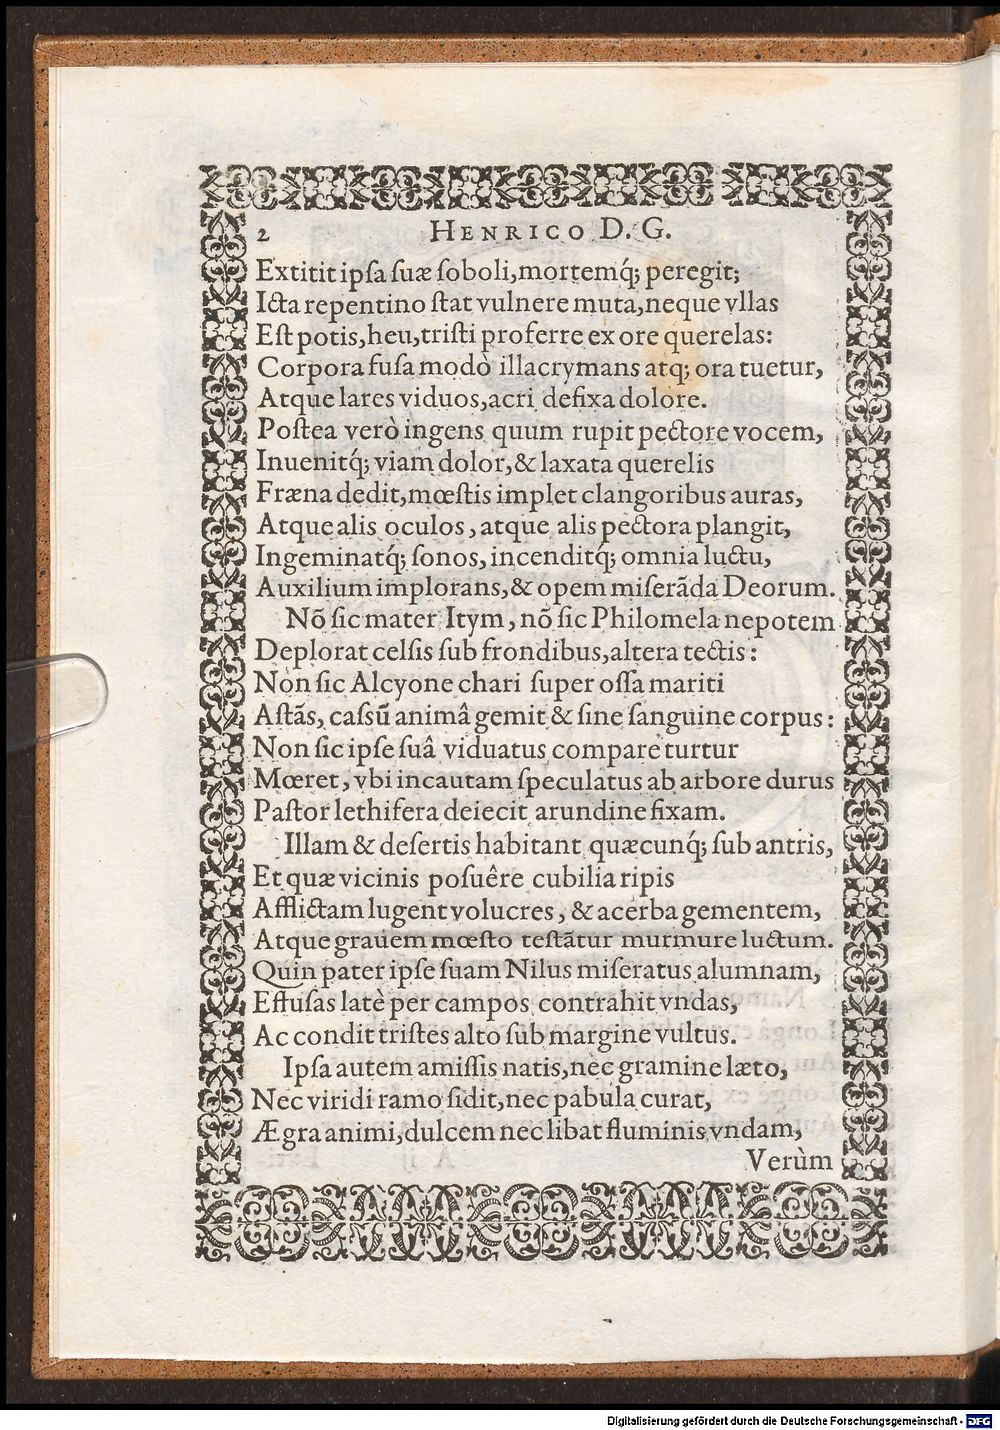 2 HENRICO D. G.
Extitit ipſa ſuæ ſoboli, mortemq́; peregit;
Icta repentino ſtat vulnere muta, neque vllas
Eſt potis, heu, triſti proferre ex ore querelas:
Corpora fuſa modò illacrymans atq; ora tuetur,
Atque lares viduos, acri defixa dolore.
Poſtea verò ingens quum rupit pectore vocem,
Inuenitq́; viam dolor, & laxata querelis
Fræna dedit, mœſtis implet clangoribus auras,
Atque alis oculos, atque alis pectora plangit,
Ingeminatq́; ſonos, incenditq́; omnia luctu,
Auxilium implorans, & opem miſerãda Deorum.
Nõ ſic mater Itym, nõ ſic Philomela nepotem
Deplorat celſis ſub frondibus, altera tectis:
Non ſic Alcyone chari ſuper oſſa mariti
Aſtãs, caſſũ animâ gemit & ſine ſanguine corpus:
Non ſic ipſe ſuâ viduatus compare turtur
Mœret, vbi incautam ſpeculatus ab arbore durus
Paſtor lethifera deiecit arundine fixam.
Illam & deſertis habitant quæcunq́; ſub antris,
Et quæ vicinis poſuêre cubilia ripis
Afflictam lugent volucres, & acerba gementem,
Atque grauem mœſto teſtãtur murmure luctum.
Quin pater ipſe ſuam Nilus miſeratus alumnam,
Effuſas latè per campos contrahit vndas,
Ac condit triſtes alto ſub margine vultus.
Ipſa autem amiſſis natis, nec gramine læto,
Nec viridi ramo ſidit, nec pabula curat,
Ægra animi, dulcem nec libat fluminis vndam,
Verùm
Digitalisierung gefördert durch die Deutsche Forschungsgemeinschaft - DFG